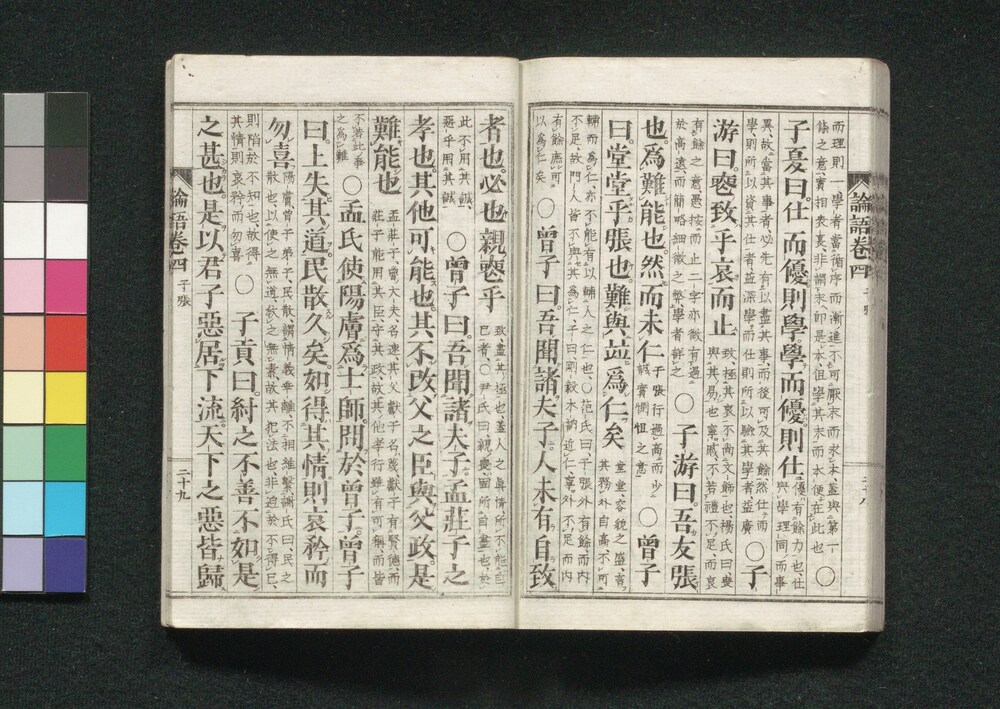 論語卷四
子張
而理則一學者當循序而漸進不可厭末而求本蓋與第一
條之意實相表裏非謂末即是本但學其末而本便在此也
○
子夏曰仕而優則學學而優則仕
優有餘力也仕
與學理同而事
異故當其事者必先有以盡其事而後可及其餘然仕而
學則所以資其仕者益深學而仕則所以驗其學者益廣
○子
游曰喪致乎哀而止
致極其哀不尚文飾也楊氏曰喪
與其易也寧戚不若禮不足而哀
有餘之意愚按而止二字亦微有過
於高遠而簡略細微之弊學者詳之
○子游曰吾友張
也爲難能也然而未仁
子張行過高而少
誠實惻怛之意
○曾子
曰堂堂乎張也難與竝爲仁矣
堂堂容貌之盛言
其務外自高不可
輔而爲仁亦不能有以輔人之仁也○范氏曰子張外有餘而内
不足故門人皆不與其爲仁子曰剛毅木訥近仁寧外不足而内
有餘庶可
以爲仁矣
○曾子曰吾聞諸夫子人未有自致
者也必也親喪乎
致盡其極也蓋人之眞情所不能自
已者○尹氏曰親喪固所自盡也於
此不用其誠
惡乎用其誠
○曾子曰吾聞諸夫子孟莊子之
孝也其他可能也其不改父之臣與父政是
難能也
孟莊子魯大夫名速其父獻子名蔑獻子有賢德而
莊子能用其臣守其政故其他孝行雖有可稱而皆
不若此事
之爲難
○孟氏使陽膚爲士師問於曾子曾子
曰上失其道民散久矣如得其情則哀矜而
勿喜
陽膚曾子弟子民散謂情義乖離不相維繫謝氏曰民之
散也以使之無道教之無素故其犯法也非迫於不得已
則陷於不知也故得
其情則哀矜而勿喜
○子貢曰紂之不善不如是
之甚也是以君子惡居下流天下之惡皆歸
論語卷四
子張
二十九